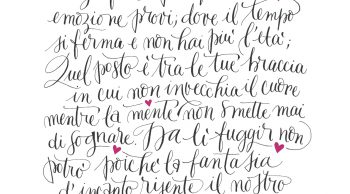 emozione provi; dove il tempo
si ferma e non hai più l'età;
Quel posto è tra le tue braccia
in cui non invecchia il cuore
mentre la mente non smette mai
di sognare. Da lì fuggir non
potrò poiché la fantasia
d'incanto risente il nostro